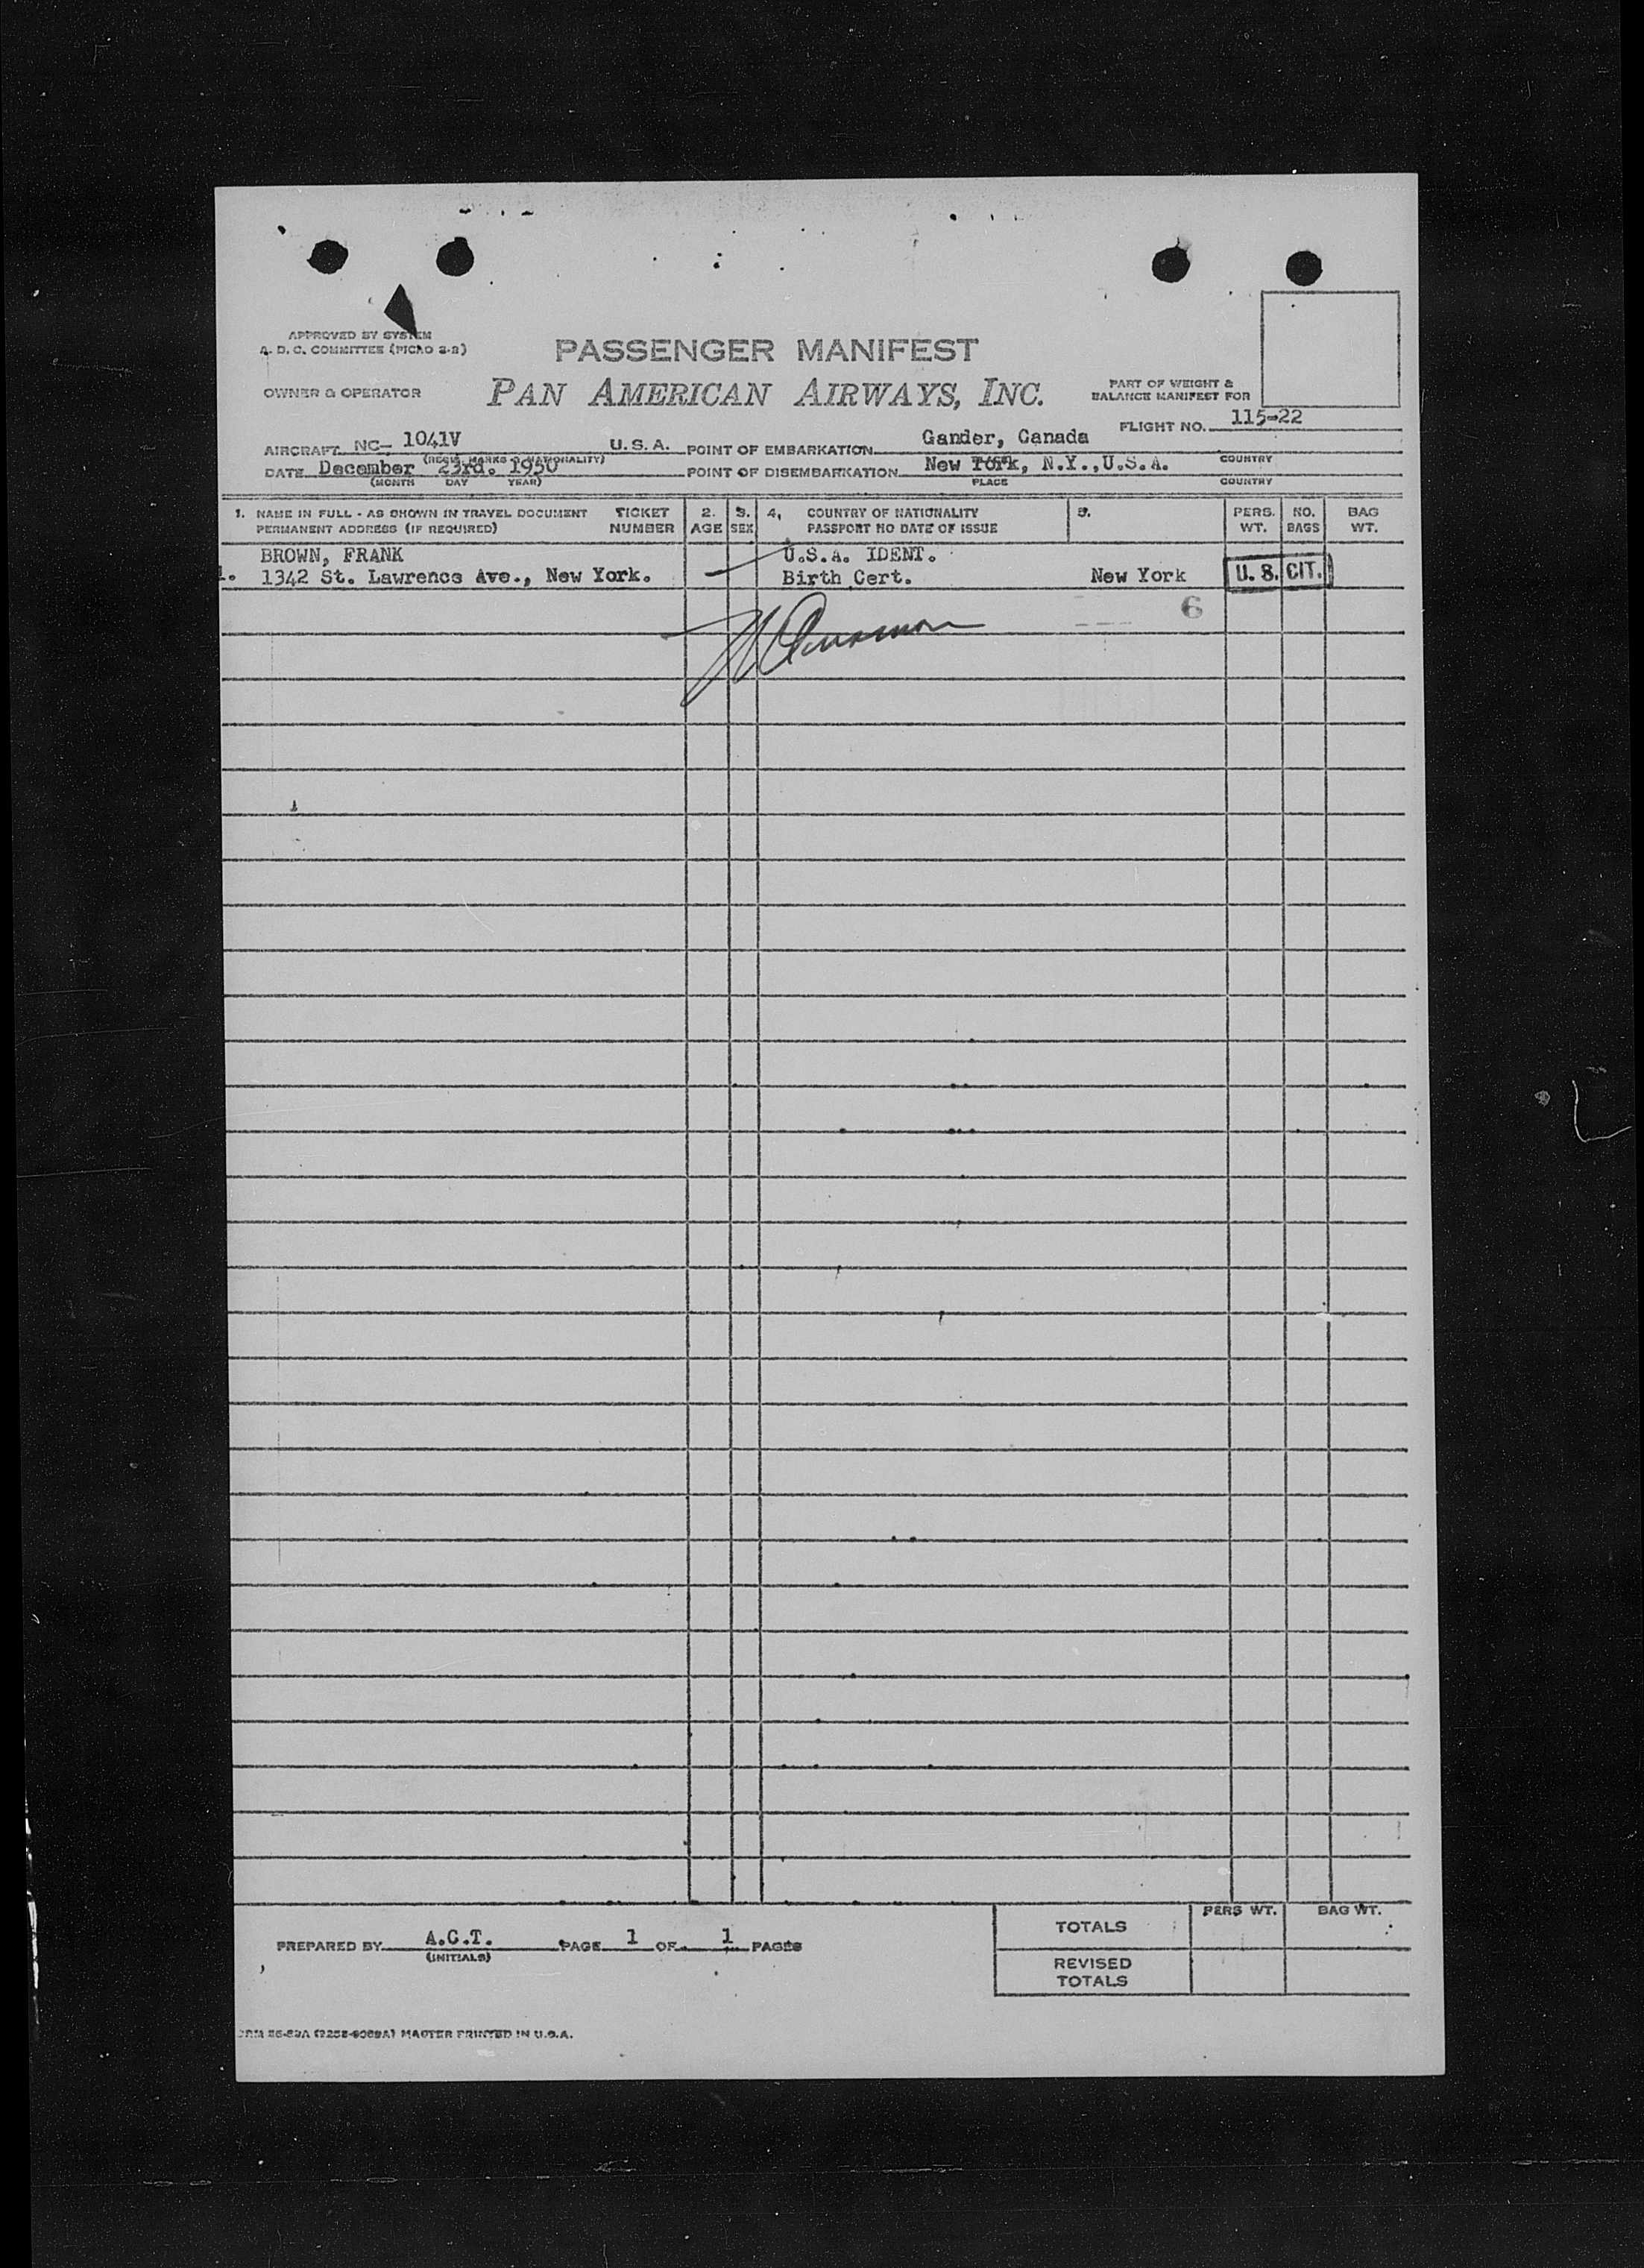 APPROVED BY SYSTEM
A. D. C. COMMITTEE (PICAO 2-2)
PASSENGER MANIFEST
OWNER & OPERATOR
PAN AMERICAN AIRWAYS, INC.
PART OF WEIGHT &
BALANCE MANIFEST FOR
FLIGHT NO. 115-22
AIRCRAFT NC- 1041V U.S.A. POINT OF EMBARKATION Gander, Canada
(REGIS. MARKS & NATIONALITY) PLACE COUNTRY
DATE December 23rd. 1950 POINT OF DISEMBARKATION New York, N.Y.,U.S.A.
(MONTH DAY YEAR) PLACE COUNTRY
1. NAME IN FULL - AS SHOWN IN TRAVEL DOCUMENT TICKET 2. 3. 4. COUNTRY OF NATIONALITY 5. PERS. NO. BAG
PERMANENT ADDRESS (IF REQUIRED) NUMBER AGE SEX PASSPORT NO DATE OF ISSUE WT. BAGS WT.
BROWN, FRANK U.S.A. IDENT.
1. 1342 St. Lawrence Ave., New York. Birth Cert. New York U. S. CIT.
6
PERS WT. BAG WT.
TOTALS
PREPARED BY A.C.T. PAGE 1 OF 1 PAGES
(INITIALS)
REVISED
TOTALS
MASTER PRINTED IN U.S.A.